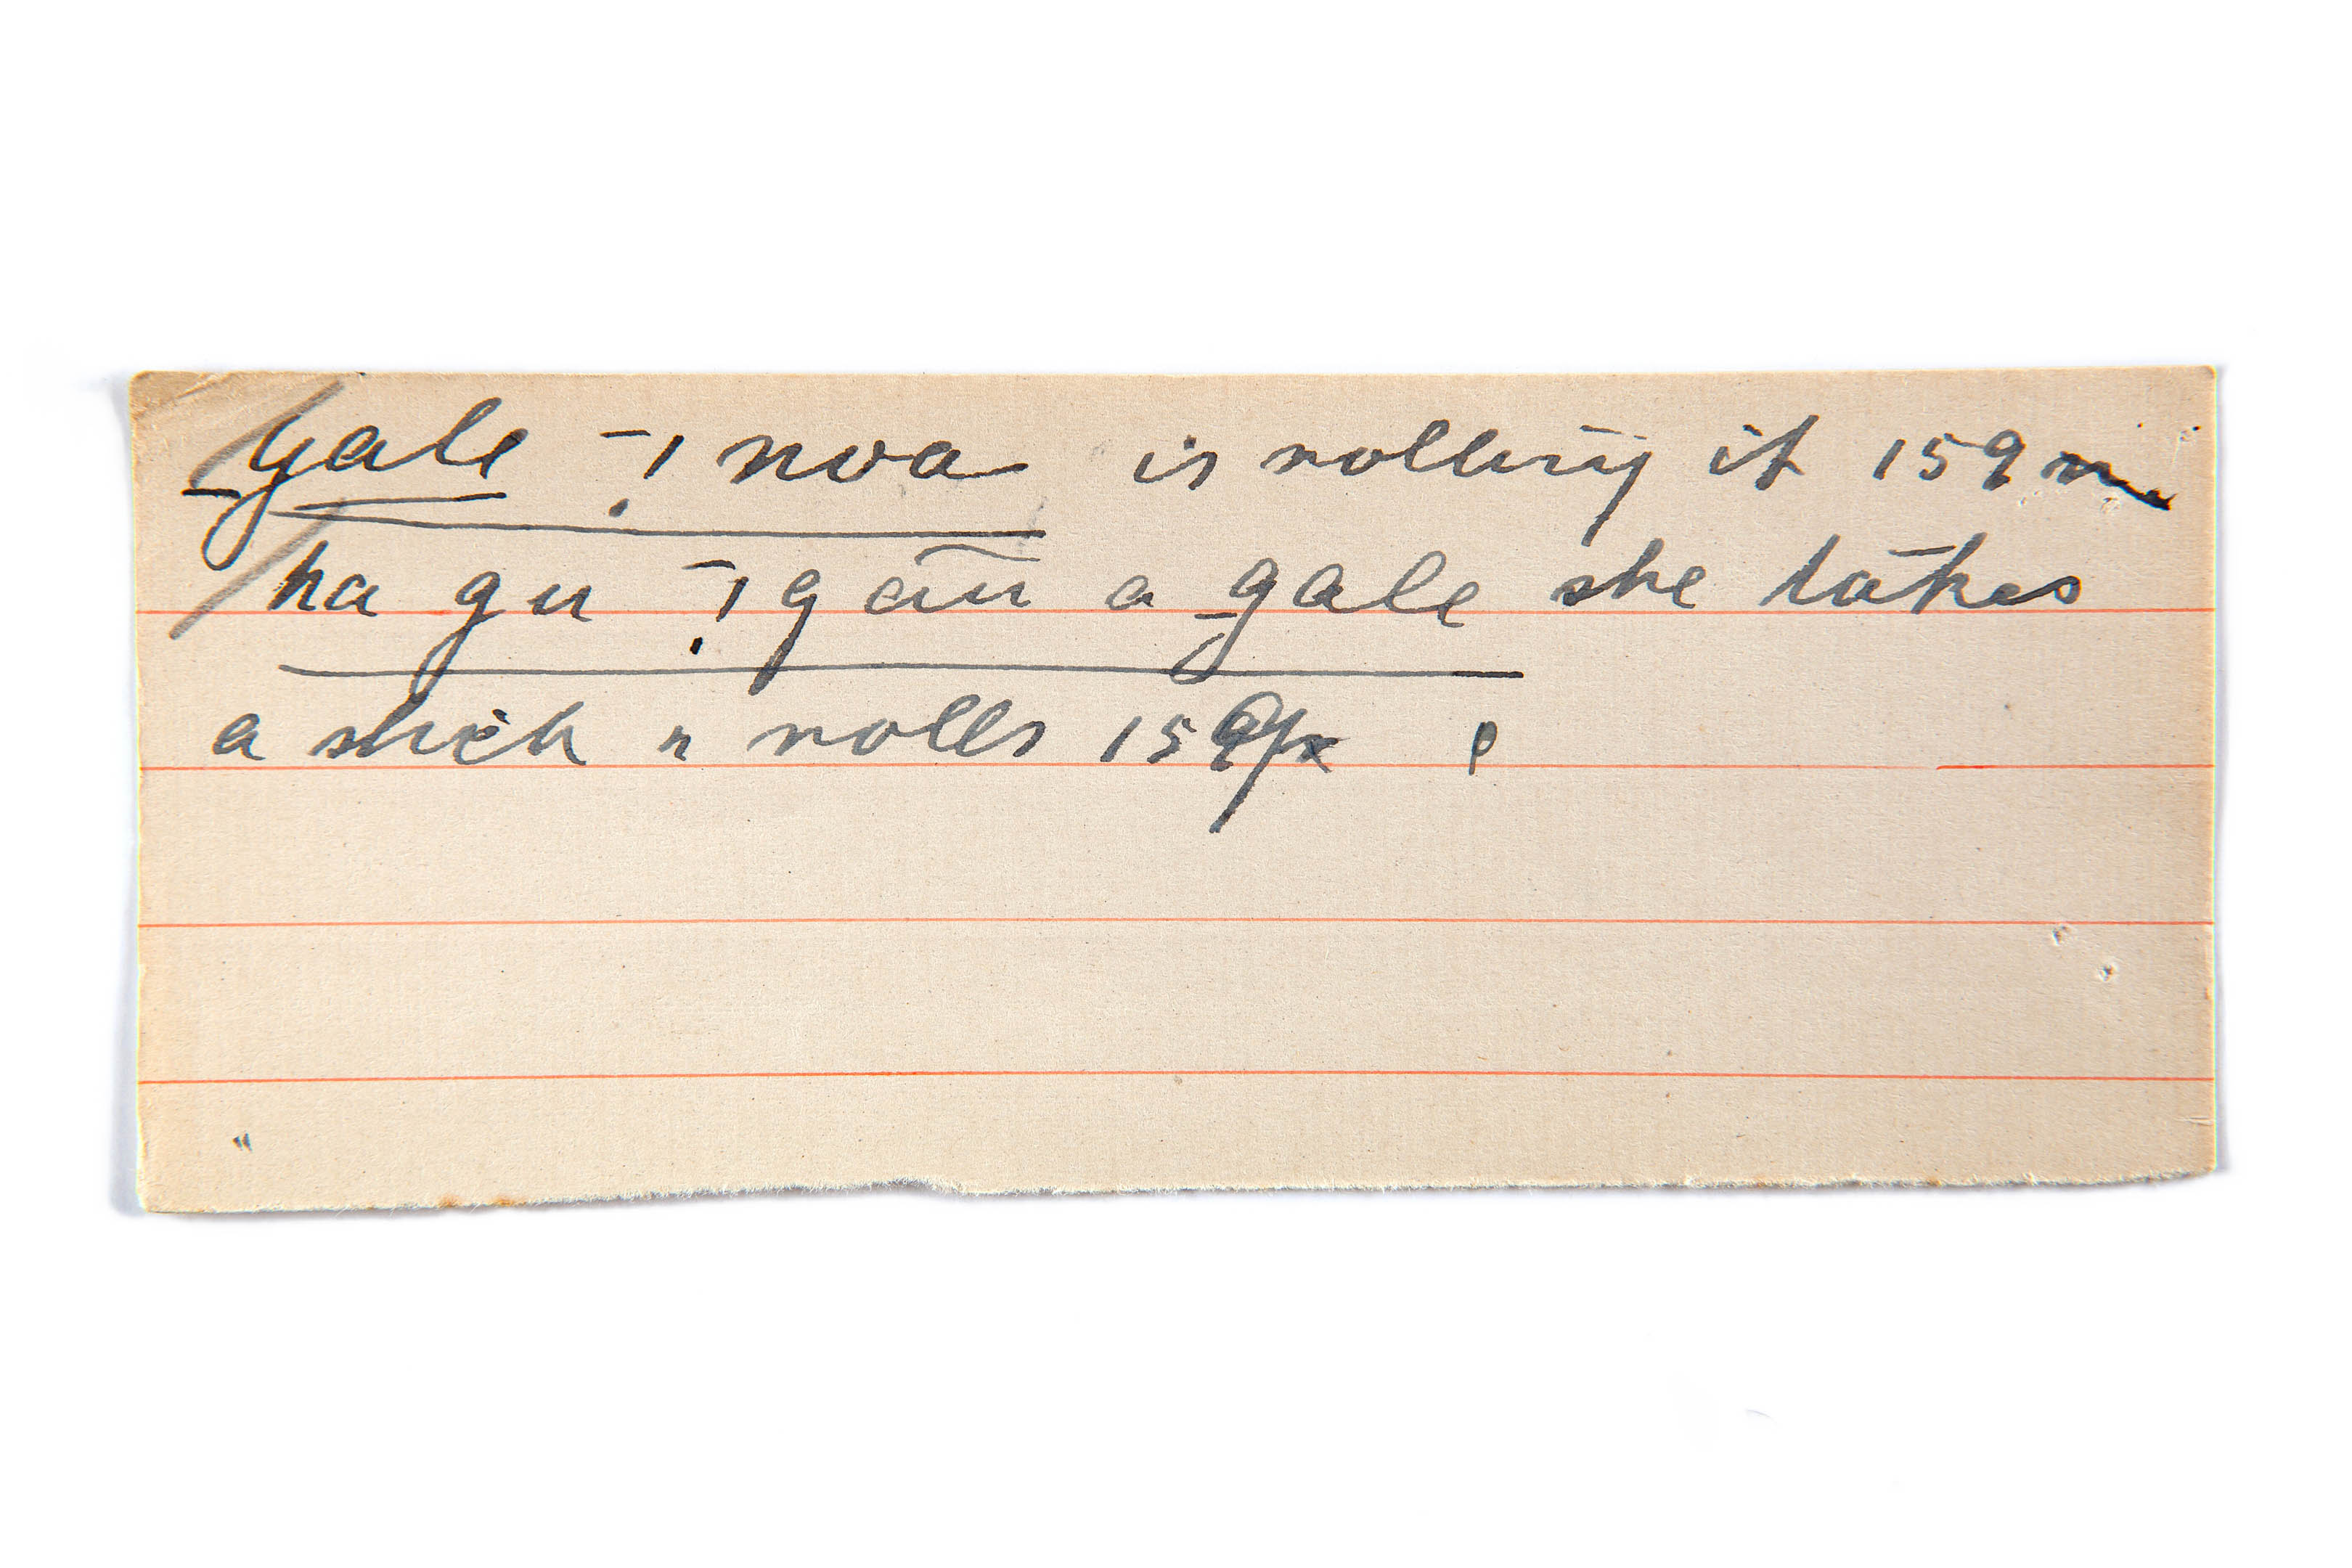 gale ī noa is rolling it 159
ha gu ī gaū a gale she takes
a stick n rolls 159
"